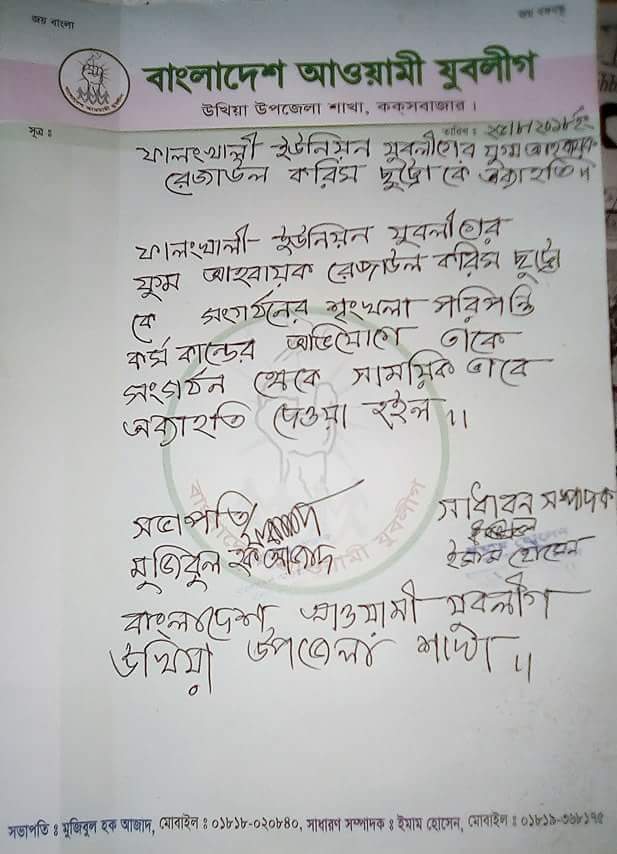 জয় বাংলা
জয় বঙ্গবন্ধু
বাংলাদেশ আওয়ামী যুবলীগ
উখিয়া উপজেলা শাখা, কক্সবাজার।
সূত্র ঃ
তারিখ ঃ ২৫/৮/২০১৮ইং
ফালংখালী ইউনিয়ন যুবলীগের যুগ্ম আহবায়ক
রেজাউল করিম ছুট্টো কে অব্যাহতি
ফালংখালী ইউনিয়ন যুবলীগের
যুগ্ম আহবায়ক রেজাউল করিম ছুট্টো
কে সংগঠনের শৃংখলা পরিপন্তি
কর্ম কান্ডের অভিযোগে তাকে
সংগঠন থেকে সাময়িক ভাবে
অব্যাহতি দেওয়া হইল।।
সভাপতি
সাধারন সম্পাদক
মুজিবুল হক আজাদ
ইমাম হোসেন
বাংলাদেশ আওয়ামী যুবলীগ
উখিয়া উপজেলা শাখা।।
বাংলাদেশ আওয়ামী যুবলীগ
সভাপতি ঃ মুজিবুল হক আজাদ, মোবাইল ঃ ০১৮১৮-০২০৮৪০, সাধারণ সম্পাদক ঃ ইমাম হোসেন, মোবাইল ঃ ০১৮১৯-৩৬৮১৭৫